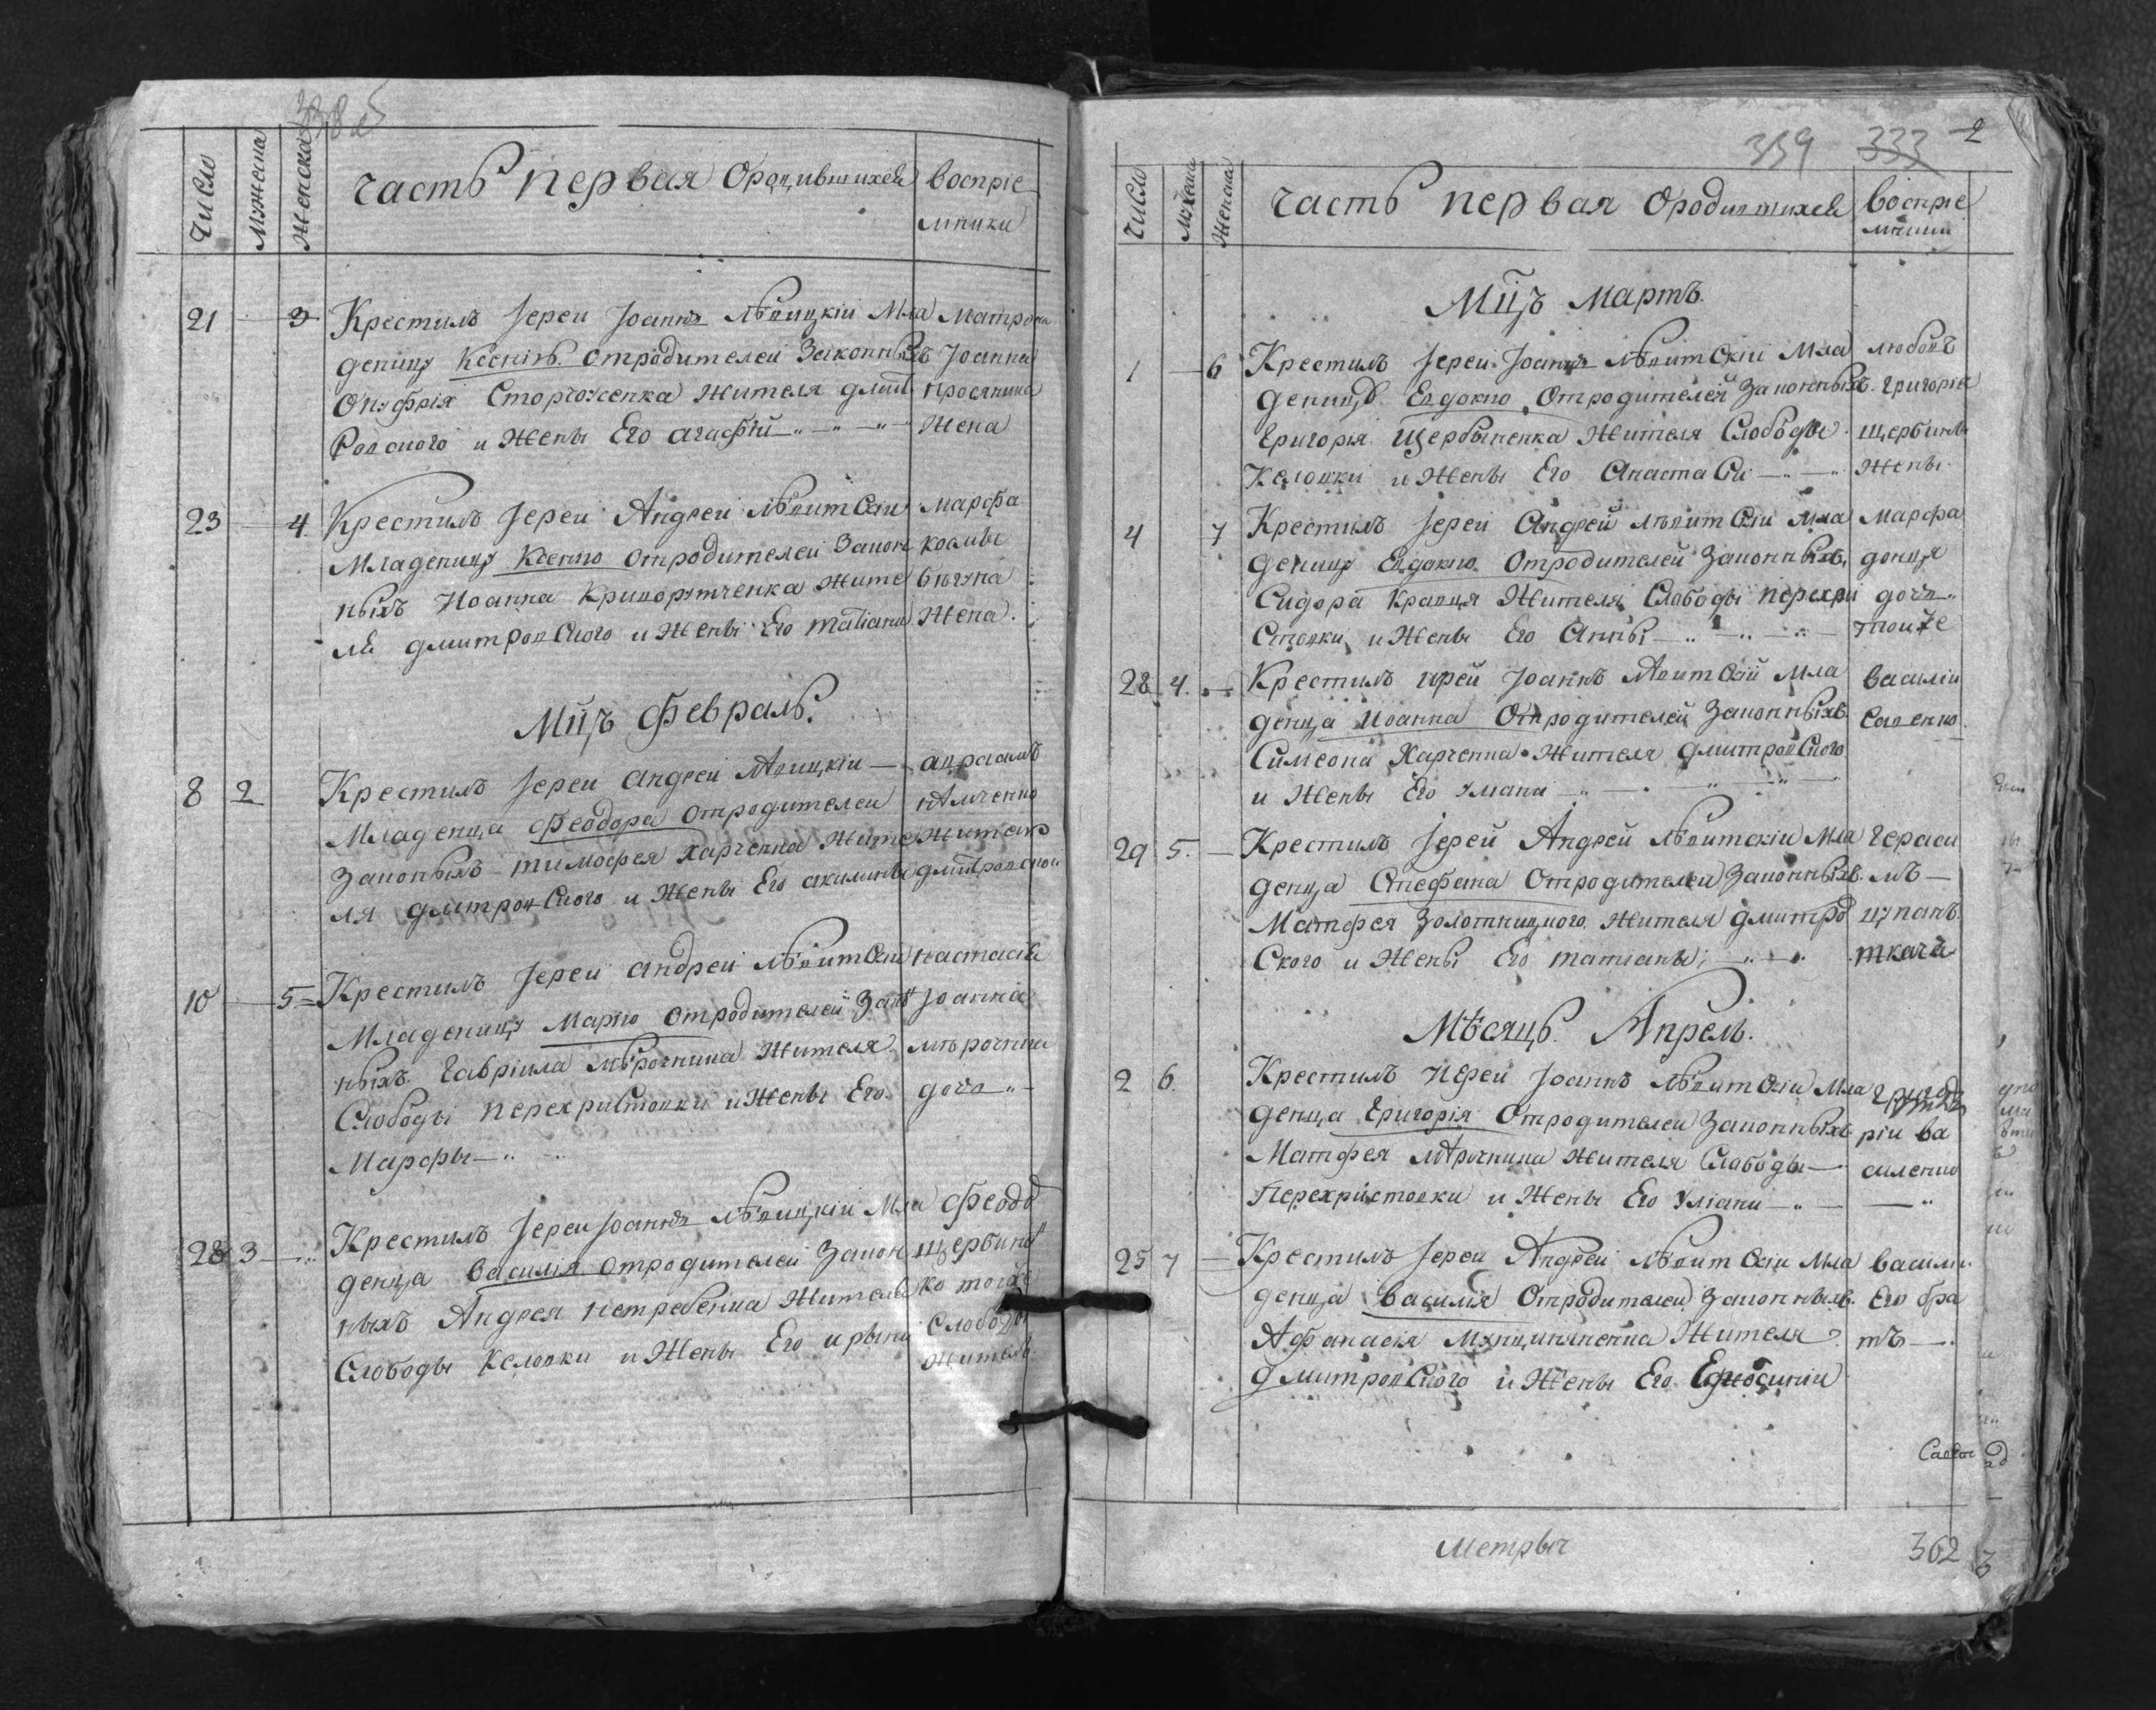 338 об
Число
Мужеска
Женска
Часть первая Ородившихся
воспріе
мники
21 3 Крестилъ Іереи Іоаннъ Лѣвицкіи Мла
деницу Ксенію отродителеи Законныхъ
Онуфрія Сторчоженка Жителя дмит
Ровского и Жены Его агафіи
Матрона
Іоанна
Просянина
Жена
23 4. Крестилъ Іереи Андреи Лѣвитскіи
Младеницу Ксению отродителеи Закон
ныхъ Иоанна Криворутченка Жите
ля дмитровского и Жены Его татіани
марфа
козмы
бѣгуна
Жена.
Мцъ февраль.
8 2 Крестилъ Іереи андреи Лѣвицкіи
Младенца Феодора отродителеи
Законыхъ тимофея Харченка Жите
ля дмитровского и Жены Его акилины
авраамъ
Житель
дмитровскои
10 5 Крестилъ Іереи андреи Лѣвитскіи
Младеницу Марию отродителеи Зако
ныхъ Гавріила Мѣрочника Жителя
Слободы перехристовки и Жены Его
Марфы
настасія
Іоанна
мѣрочника
доча
28 3 Крестилъ Іереи Іоаннъ Лѣвицкіи Мла
денца Василія отродителеи Закон
ныхъ Андрея нетребенка Жителя
Слободы Келовки и Жены Его ирыни
Феодо
щербинен
ко тоиже
Слободы
Житель
359 333 2
Число
Мужеска
Женска
Часть первая Ородившихся
воспріе
мники
Мцъ Мартъ.
1 6 Крестилъ Іереи Іоаннъ Лѣвитскіи Мла
деницу Евдокию Отродителей Законныхъ
Григорія Щербыненка Жителя Слободы
Келовки и Жены Его Анастасіи
любовъ
григорія
щербины
Жены
4 7 Крестилъ Іереи Андрей лѣвитскіи мла
деницу Евдакию Отродителей Законныхъ
Сидора Кравця Жителя Слободы перехри
Стовки и Жены Его Анны
Марфа
донця
доча
тоиже
28 4. Крестилъ иреи Іоаннъ Лѣвитскіи Мла
денца Иоанна Отродителей Законныхъ
Симеона Харченка Жителя дмитровского
и Жены Его Уліани
василіи
Савенко
29 5. Крестилъ Іереи Андрей Лѣвитскіи Мла
денца Стефана Отродителеи Законныхъ
Матфея Золотницкого Жителя дмитро
Ского и Жены Его татіаны
Гераси
мъ
цупанъ
ткачъ
Мѣсяцъ Апрель.
2 6. Крестилъ Иереи Іоаннъ Лѣвитскіи Мла
денца Григорія Отродителеи Законныхъ
Матфея Мѣрочника Жителя Слободы
Перехристовки и Жены Его Уліани
ріи ва
силенко
25 7 Крестилъ Іереи Андреи Лѣвитскіи Мла
денца Василія Отродителеи Законныхъ
Афанасія Жителя
дмитровского и Жены Его Ефросиніи
василіи
Его бра
тъ
Метрыч
362